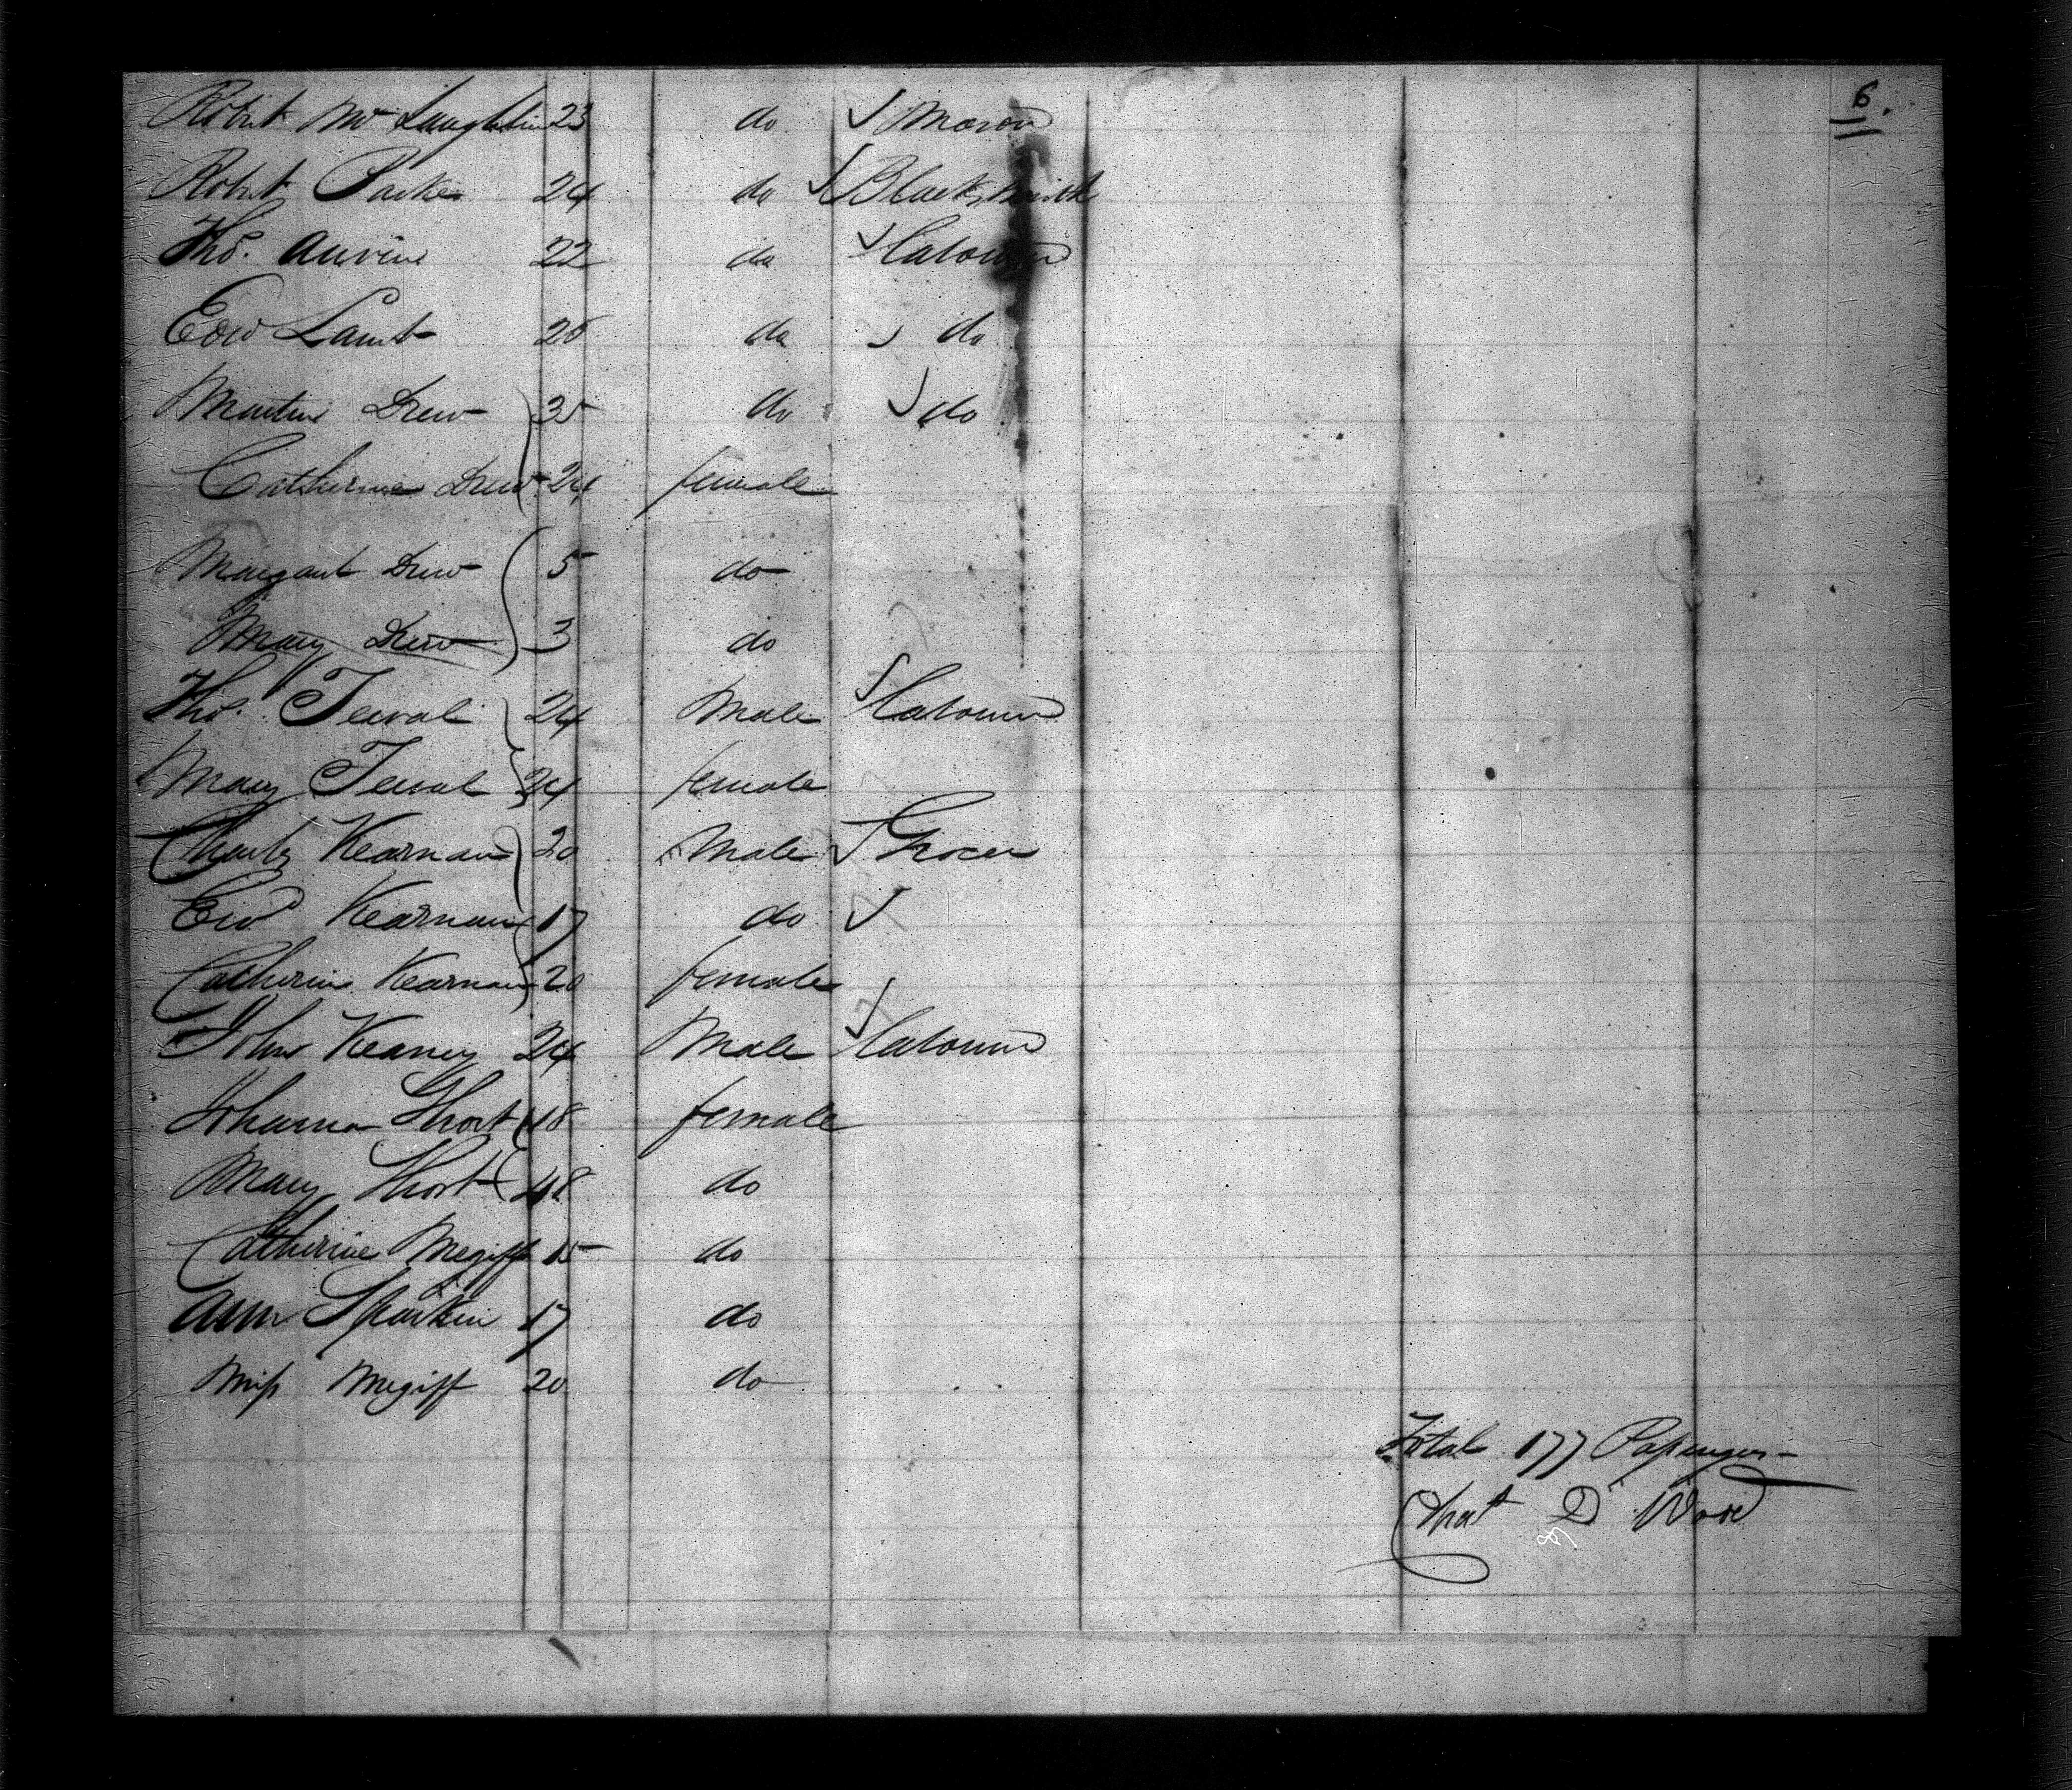 6.
Robert McLaughlin 23 do Mason
Robert Parker 24 do Blacksmith
Tho. 22 do Labourer
Edw Lamb 25 do do
Martin Drew 35 do do
Catherine Drew 24 female
Margaret Drew 5 do
Mary Drew 3 do
Tho. 24 Male Labourer
Mary 24 female
Charls Kearnan 20 Male Grocer
Ewd Kearnan 17 do
Catherine Kearnan 20 female
John Kearney 24 Male Labourer
Johanna Short 18 female
Mary Short 48 do
Catherine Megiff 15 do
Ann 17 do
Miss Megiff 20 do
Total 177 Passengers
D